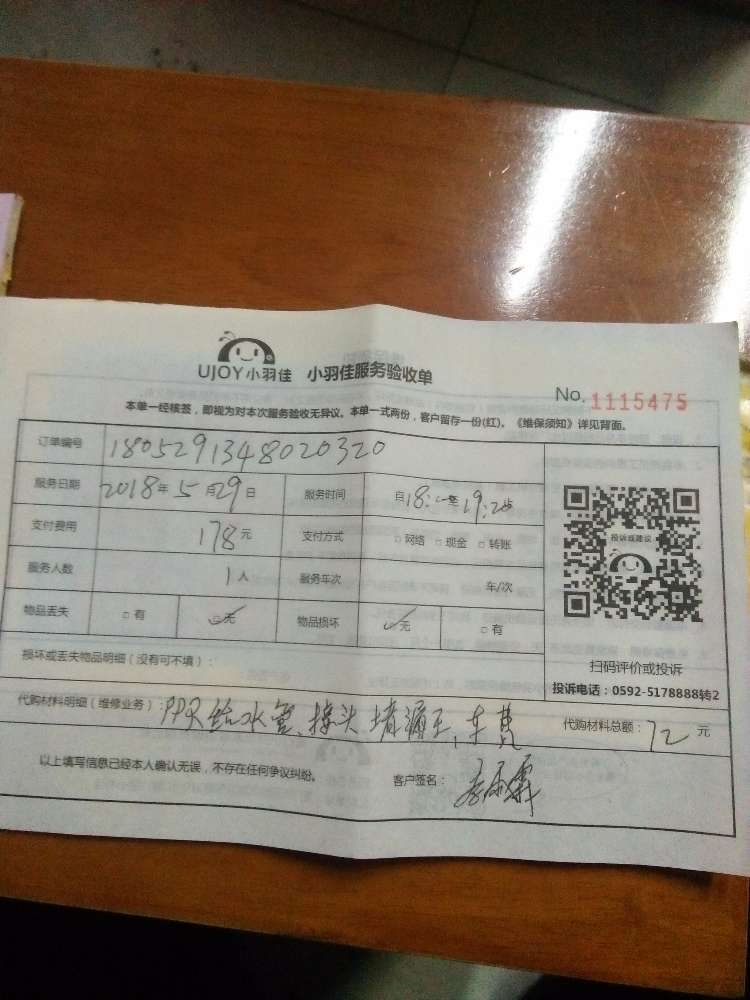 UJOY小羽佳 小羽佳服务验收单
No. 1115475
本单一经核签，即视为对本次服务验收无异议。本单一式两份，客户留存一份(红)。《维保须知》详见背面。
订单编号 1805291348020320
服务日期 2018年5月29日 服务时间 自18: 至19:
支付费用 178元 支付方式 □网络 □现金 □转账
服务人数 1人 服务车次 车/次
物品丢失 □有 □无 物品损坏 □无 □有
投诉或建议
扫码评价或投诉
投诉电话：0592-5178888转2
损坏或丢失物品明细（没有可不填）：
代购材料明细（维修业务）：PPR给水管、接头 堵漏王，车费 代购材料总额：72元
以上填写信息已经本人确认无误，不存在任何争议纠纷。 客户签名：